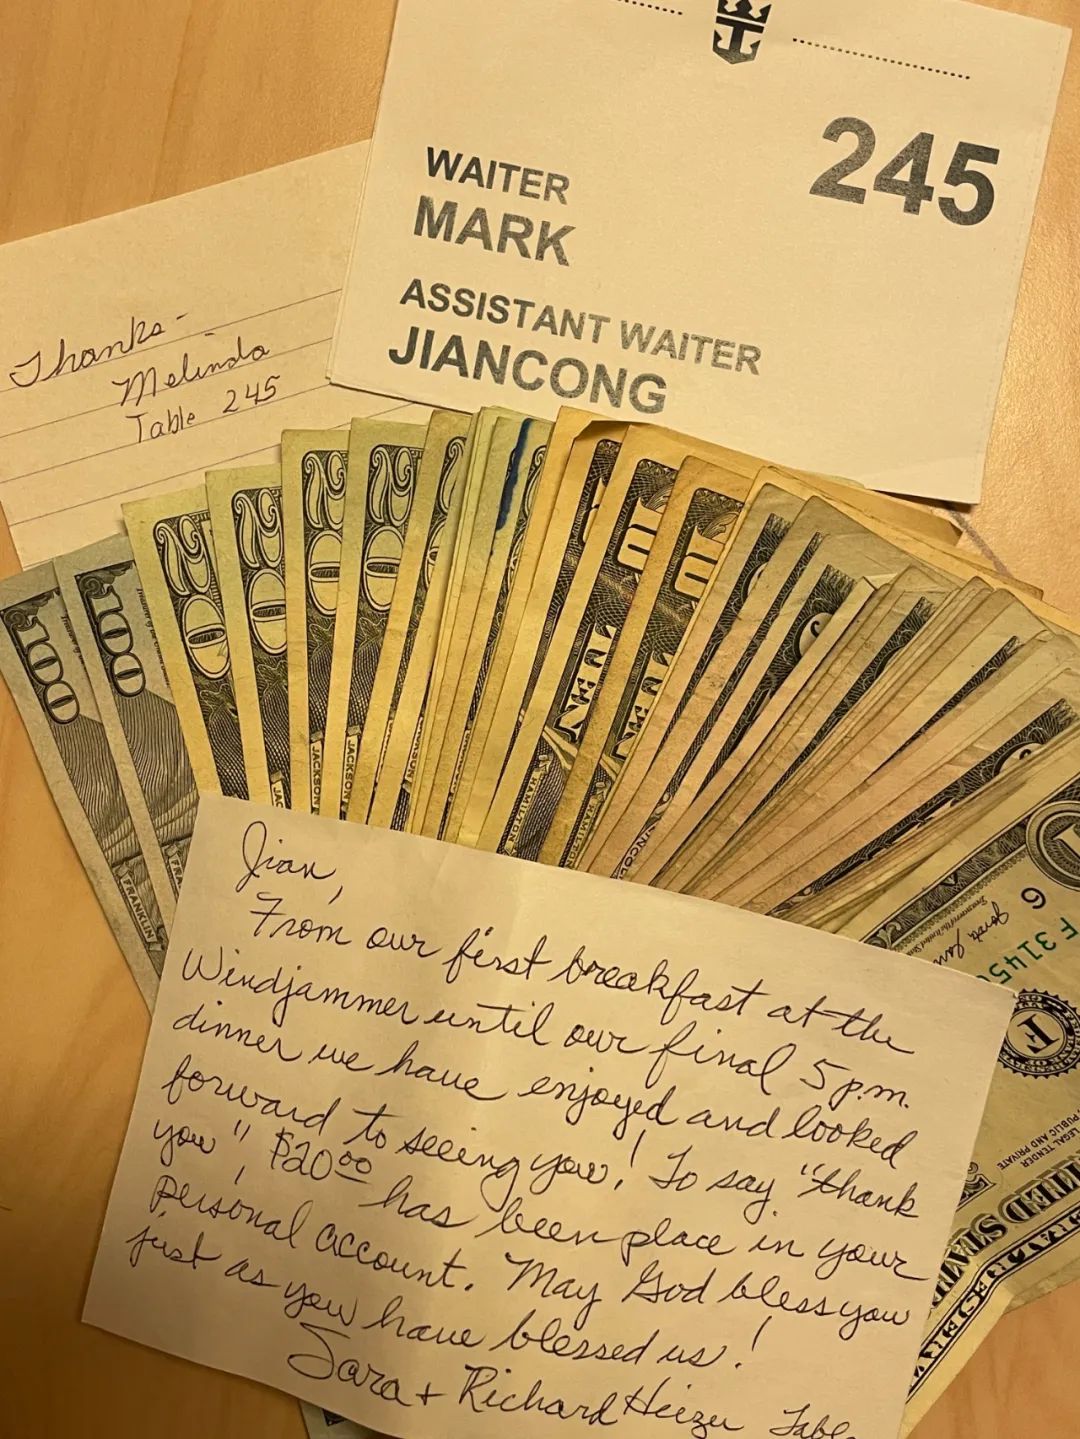 245
WAITER
MARK
ASSISTANT WAITER
JIANCONG
Thanks-
Melinda
Table 245
100
100
20
20
20
20
20
10
10
JACKSON
JACKSON
HAMILTON
HAMILTON
FRANKLIN
FRANKLIN
F 3145
6
F
1
Jian,
From our first breakfast at the
Windjammer until our final 5 p.m.
dinner we have enjoyed and looked
forward to seeing you! To say "thank
you", $20.00 has been place in your
personal account. May God bless you
just as you have blessed us!
Sara + Richard